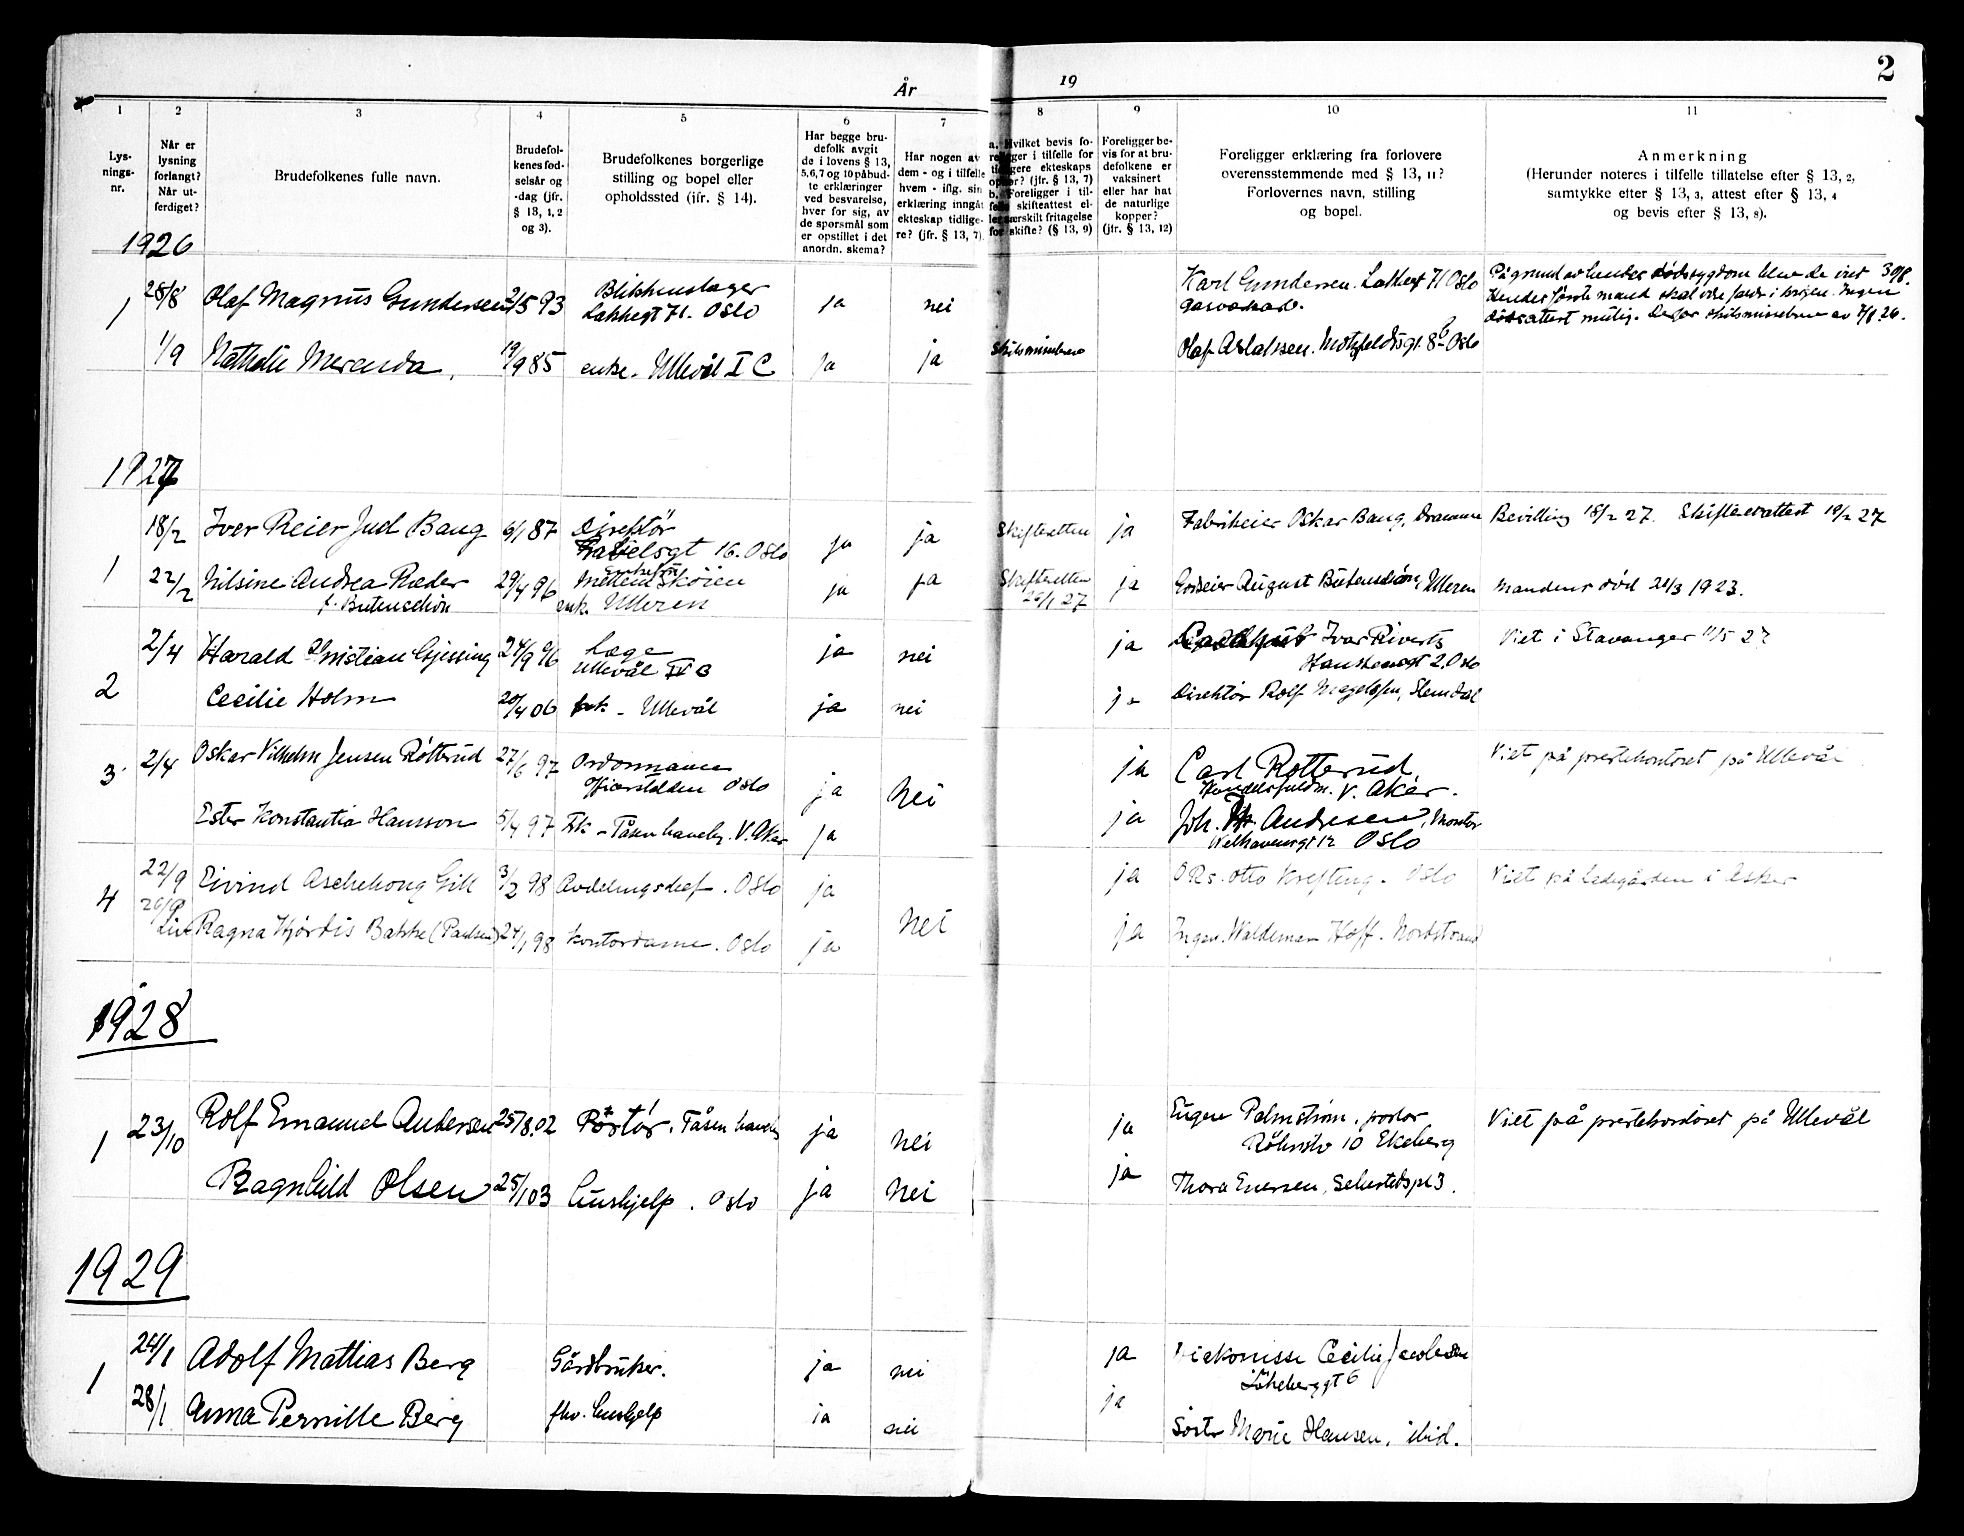 År 19
2
1 2 3 4 5 6 7 8 9 10 11
Lys-
nings-
nr.
Når er
lysning
forlangt?
Når ut-
ferdiget?
Brudefolkenes fulle navn.
Brudefol-
kenes fød-
selsår og
-dag (jfr.
§ 13, 1, 2
og 3).
Brudefolkenes borgerlige
stilling og bopel eller
opholdssted (jfr. § 14).
Har begge bru-
defolk avgit
de i lovens § 13,
5,6,7 og 10 påbud-
te erklæringer
ved besvarelse,
hver for sig, av
de spørsmål som
er opstillet i det
anordn. skema?
Har nogen av
dem - og i tilfelle
hvem - iflg. sin
erklæring inngåt
ekteskap tidlige-
re? (jfr. § 13, 7).
Hvilket bevis fo-
religger i tilfelle for
tidligere ekteskaps
(jfr. § 13, 7)
Foreligger i til-
felle skifteattest el-
ler særskilt fritagelse
for skifte? (§ 13, 9)
Foreligger be-
vis for at bru-
defolkene er
vaksinert
eller har hat
de naturlige
kopper?
(jfr. § 13, 12)
Foreligger erklæring fra forlovere
overensstemmende med § 13, 11?
Forlovernes navn, stilling
og bopel.
Anmerkning
(Herunder noteres i tilfelle tillatelse efter § 13, 2,
samtykke efter § 13, 3, attest efter § 13, 4
og bevis efter § 13, 8).
1926
1 28/8 Olaf Magnus Gundersen 2/5 93 Blikkenslager
Lakkegt 71. Oslo ja nei
Karl Gundersen. Lakkegt 71 Oslo
På grund av hendes dødssygdom blev de viet 30/8.
Hendes første mand skal være falt i krigen. Ingen
dødsattest mulig. Derfor skilsmissebrev av 7/8 26.
1/9 Nathalie Meranda 19/9 85 enke. Ullevål I C ja ja Skilsmissebrev
Olaf Aslaksen. Motzfeldtsgt. 8b Oslo
1927
1 18/2 Iver Reier Juel Bang 6/1 87 Direktør
16. Oslo ja ja Skifteretten ja
Fabrikeier Oskar Bang, Drammen
Bevilling 18/2 27. Skifteattest 19/2 27
22/2 Nilsine Andrea Ræder
f. Butenschøn 29/4 96 Mellem Skøien
enke. Ulleren ja ja Skifteretten
/1 27 ja
Godseier August Butenschøn, Ulleren
Mandens død 21/3 1923.
2 2/4 Harald Christian Gjessing 24/9 96 Læge
Ullevål ja nei ja
Ivar Rivertz
Hansteensgt 2. Oslo
Viet i Stavanger 11/5 27
Cecilie Holm 20/4 06 frk - Ullevål ja nei ja
Direktør Rolf Magelssen, Slemdal
3 2/4 Oskar Vilhelm Jensen Røtterud 27/6 97 Ordonnance
Oslo ja nei ja
Carl Røtterud,
V. Aker.
Viet på prestekontoret på Ullevål
Ester Konstantia Hansson 5/4 97 Frk - Tåsen haveby. V. Aker ja ja
Joh. Andresen, Montør
Welhavensgt 12 Oslo
4 22/9 Eivind Aschehoug Gill 3/2 98 Avdelingschef. Oslo ja nei ja
O.Rs. Otto Krefting. Oslo
Viet på Ladegården i Asker
Ragna Hjørdis Bakke (Paulsen) 24/1 98 Kontordame. Oslo ja ja
Ingen. Waldemar Hoff. Nordstrand
1928
1 23/10 Rolf Emanuel Andersen 25/8.02 Pastor. Tåsen haveby ja nei ja
Eugen Palmstrøm, pastor
10 Ekeberg
Viet på prestekontoret på Ullevål
Ragnhild Olsen 25/1 03 Hushjelp. Oslo ja nei ja
Thora Enersen, Sehestedspl 3.
1929
1 24/1 Adolf Mattias Berg Gårdbruker. ja nei ja
Diakonisse Cecilie Jacobsen
6
28/1 Anna Pernille Berg fhv. hushjelp ja nei ja
Søster Marie Hansen, ibid.